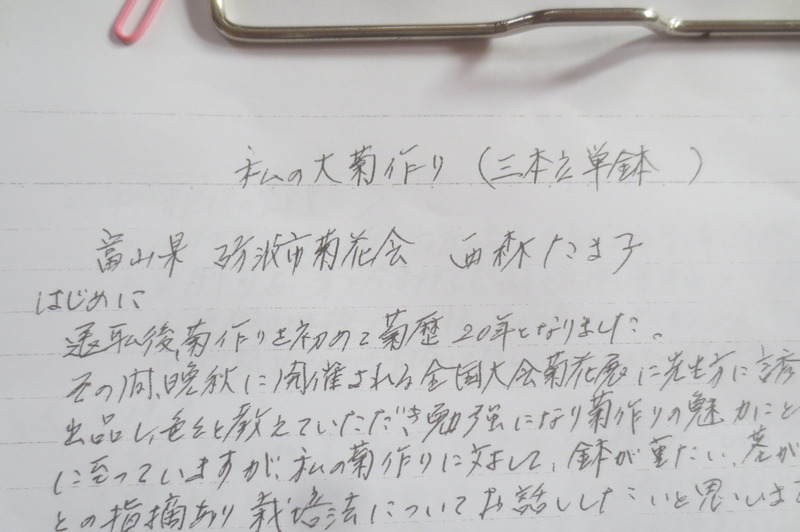 私の大菊作り（三本立単鉢　）
富山県　砺波市菊花会　西森たま子
はじめに
退私後、菊作りを初めて菊歴20年となりました。
その間、晩秋に開催される全国大会菊花展に先生方に誘
出品し、色々と教えていただき勉強になり菊作りの魅力にと
に至っていますが、私の菊作りに対して、鉢が重たい、茎が
との指摘あり栽培法についてお話ししたいと思います